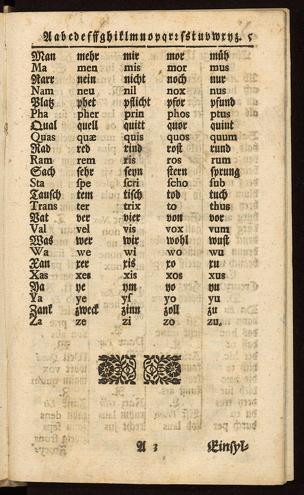 Aabcdefffghiklmnopqrſstuvwxyz. 5
Man mehr mir mor müh
Ma men mis mor mus
Narr nein nicht noch nur
Nam neu nil nox nus
Platz phet pflicht pfor pfund
Pha pher prin phos ptus
Qual quell quitt quor quint
Quas quæ quis quos quum
Rad red rind roſt rund
Ram rem ris ros rum
Sach ſehr ſeyn ſtern ſprung
Sta ſpe ſcri ſcho ſub
Tauſch tem tiſch tod tuch
Trans ter trix to thus
Vat ver vier von vor
Val vel vis vox vum
Was wer wir wohl wuſt
Wa we wi wo wu
Xan xer xis xo xu
Xas xes xis xos xus
Ya ye ym yo yu
Ya ye yſ yo yu
Zank zweck zinn zoll zu
Za ze zi zo zu.
A 3 Einſyl-